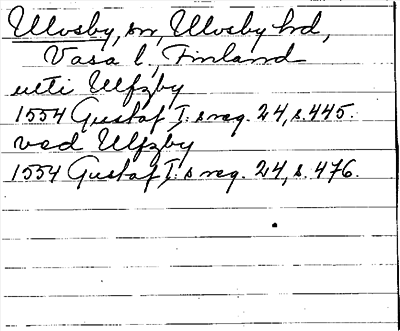 Ulvsby, sn, Ulvsby hd,
Vasa l., Finland
uti Ulfzby
1554 Gustaf I:s reg. 24, s. 445.
ved Ulfzby
1554 Gustaf I:s reg. 24, s. 476.